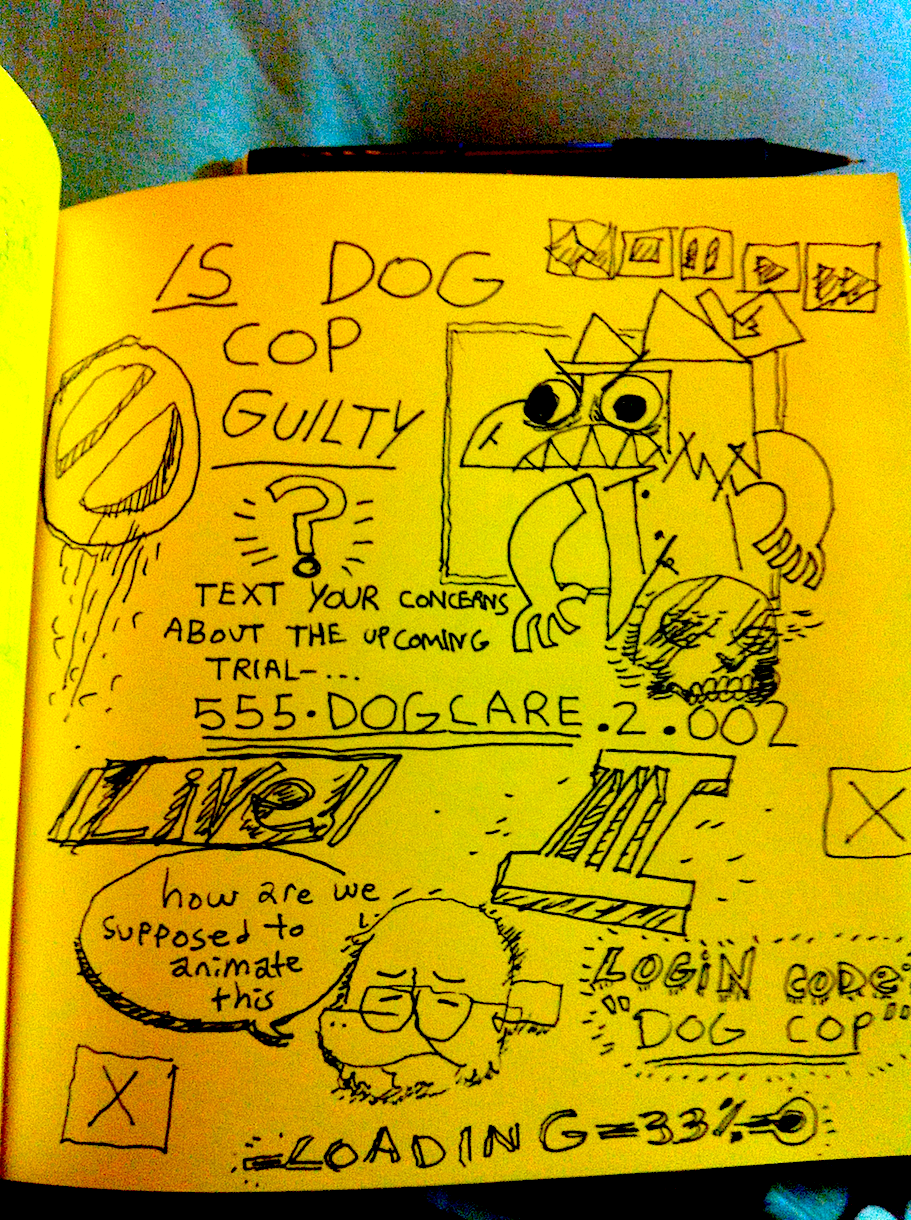 IS DOG
COP
GUILTY
?
TEXT YOUR CONCERNS
ABOUT THE UPCOMING
TRIAL-...
555.DOGCARE.2.002
LiVe!
how are we
supposed to
animate
this
X
LOGIN CODE
"DOG COP"
X
=LOADING=33%